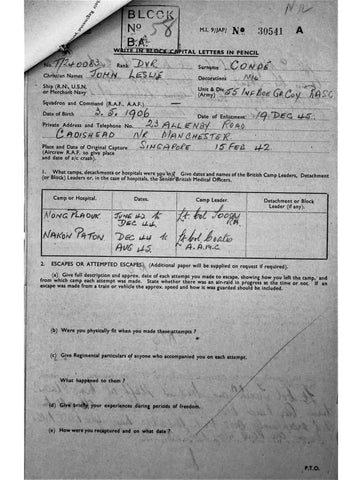 BLOCK
Nº 58
B.A.
M.I. 9/JAP/ Nº 30541 A
WRITE IN BLOCK CAPITAL LETTERS IN PENCIL
No. T/240083 Rank DVR Surname CONDÉ
Christian Names JOHN LESLIE Decorations NIL
Ship (R.N., U.S.N. or Merchant Navy) Unit & Div (Army) 55 INF BDE GP COY RASC
Squadron and Command (R.A.F., A.A.F.)
Date of Birth 3. 5. 1906 Date of Enlistment 19 DEC 40.
Private Address and Telephone No. 23 ALLENBY ROAD
CADISHEAD NR MANCHESTER
Place and Date of Original Capture SINGAPORE 15 FEB 42.
(Aircrew R.A.F. to give place
and date of a/c crash).
1. What camps, detachments or hospitals were you in? Give dates and names of the British Camp Leaders, Detachment
(or Block) Leaders or, in the case of hospitals, the Senior British Medical Officers.
Camp or Hospital. Dates. Camp Leader. Detachment or Block Leader (if any).
NONG PLADUK JUNE 42 to DEC 44. Lt. Col TOOSEY R.A.
NAKON PATON DEC 44 to AUG 45. Lt Col
A.A.M.C.
2. ESCAPES OR ATTEMPTED ESCAPES. (Additional paper will be supplied on request if required).
(a) Give full description and approx. date of each attempt you made to escape, showing how you left the camp, and
from which camp each attempt was made. State whether there was an air-raid in progress at the time or not. If an
escape was made from a train or vehicle the approx. speed and how it was guarded should be included.
(b) Were you physically fit when you made these attempts?
(c) Give Regimental particulars of anyone who accompanied you on each attempt.
What happened to them?
(d) Give briefly your experiences during periods of freedom.
(e) How were you recaptured and on what date?
P.T.O.